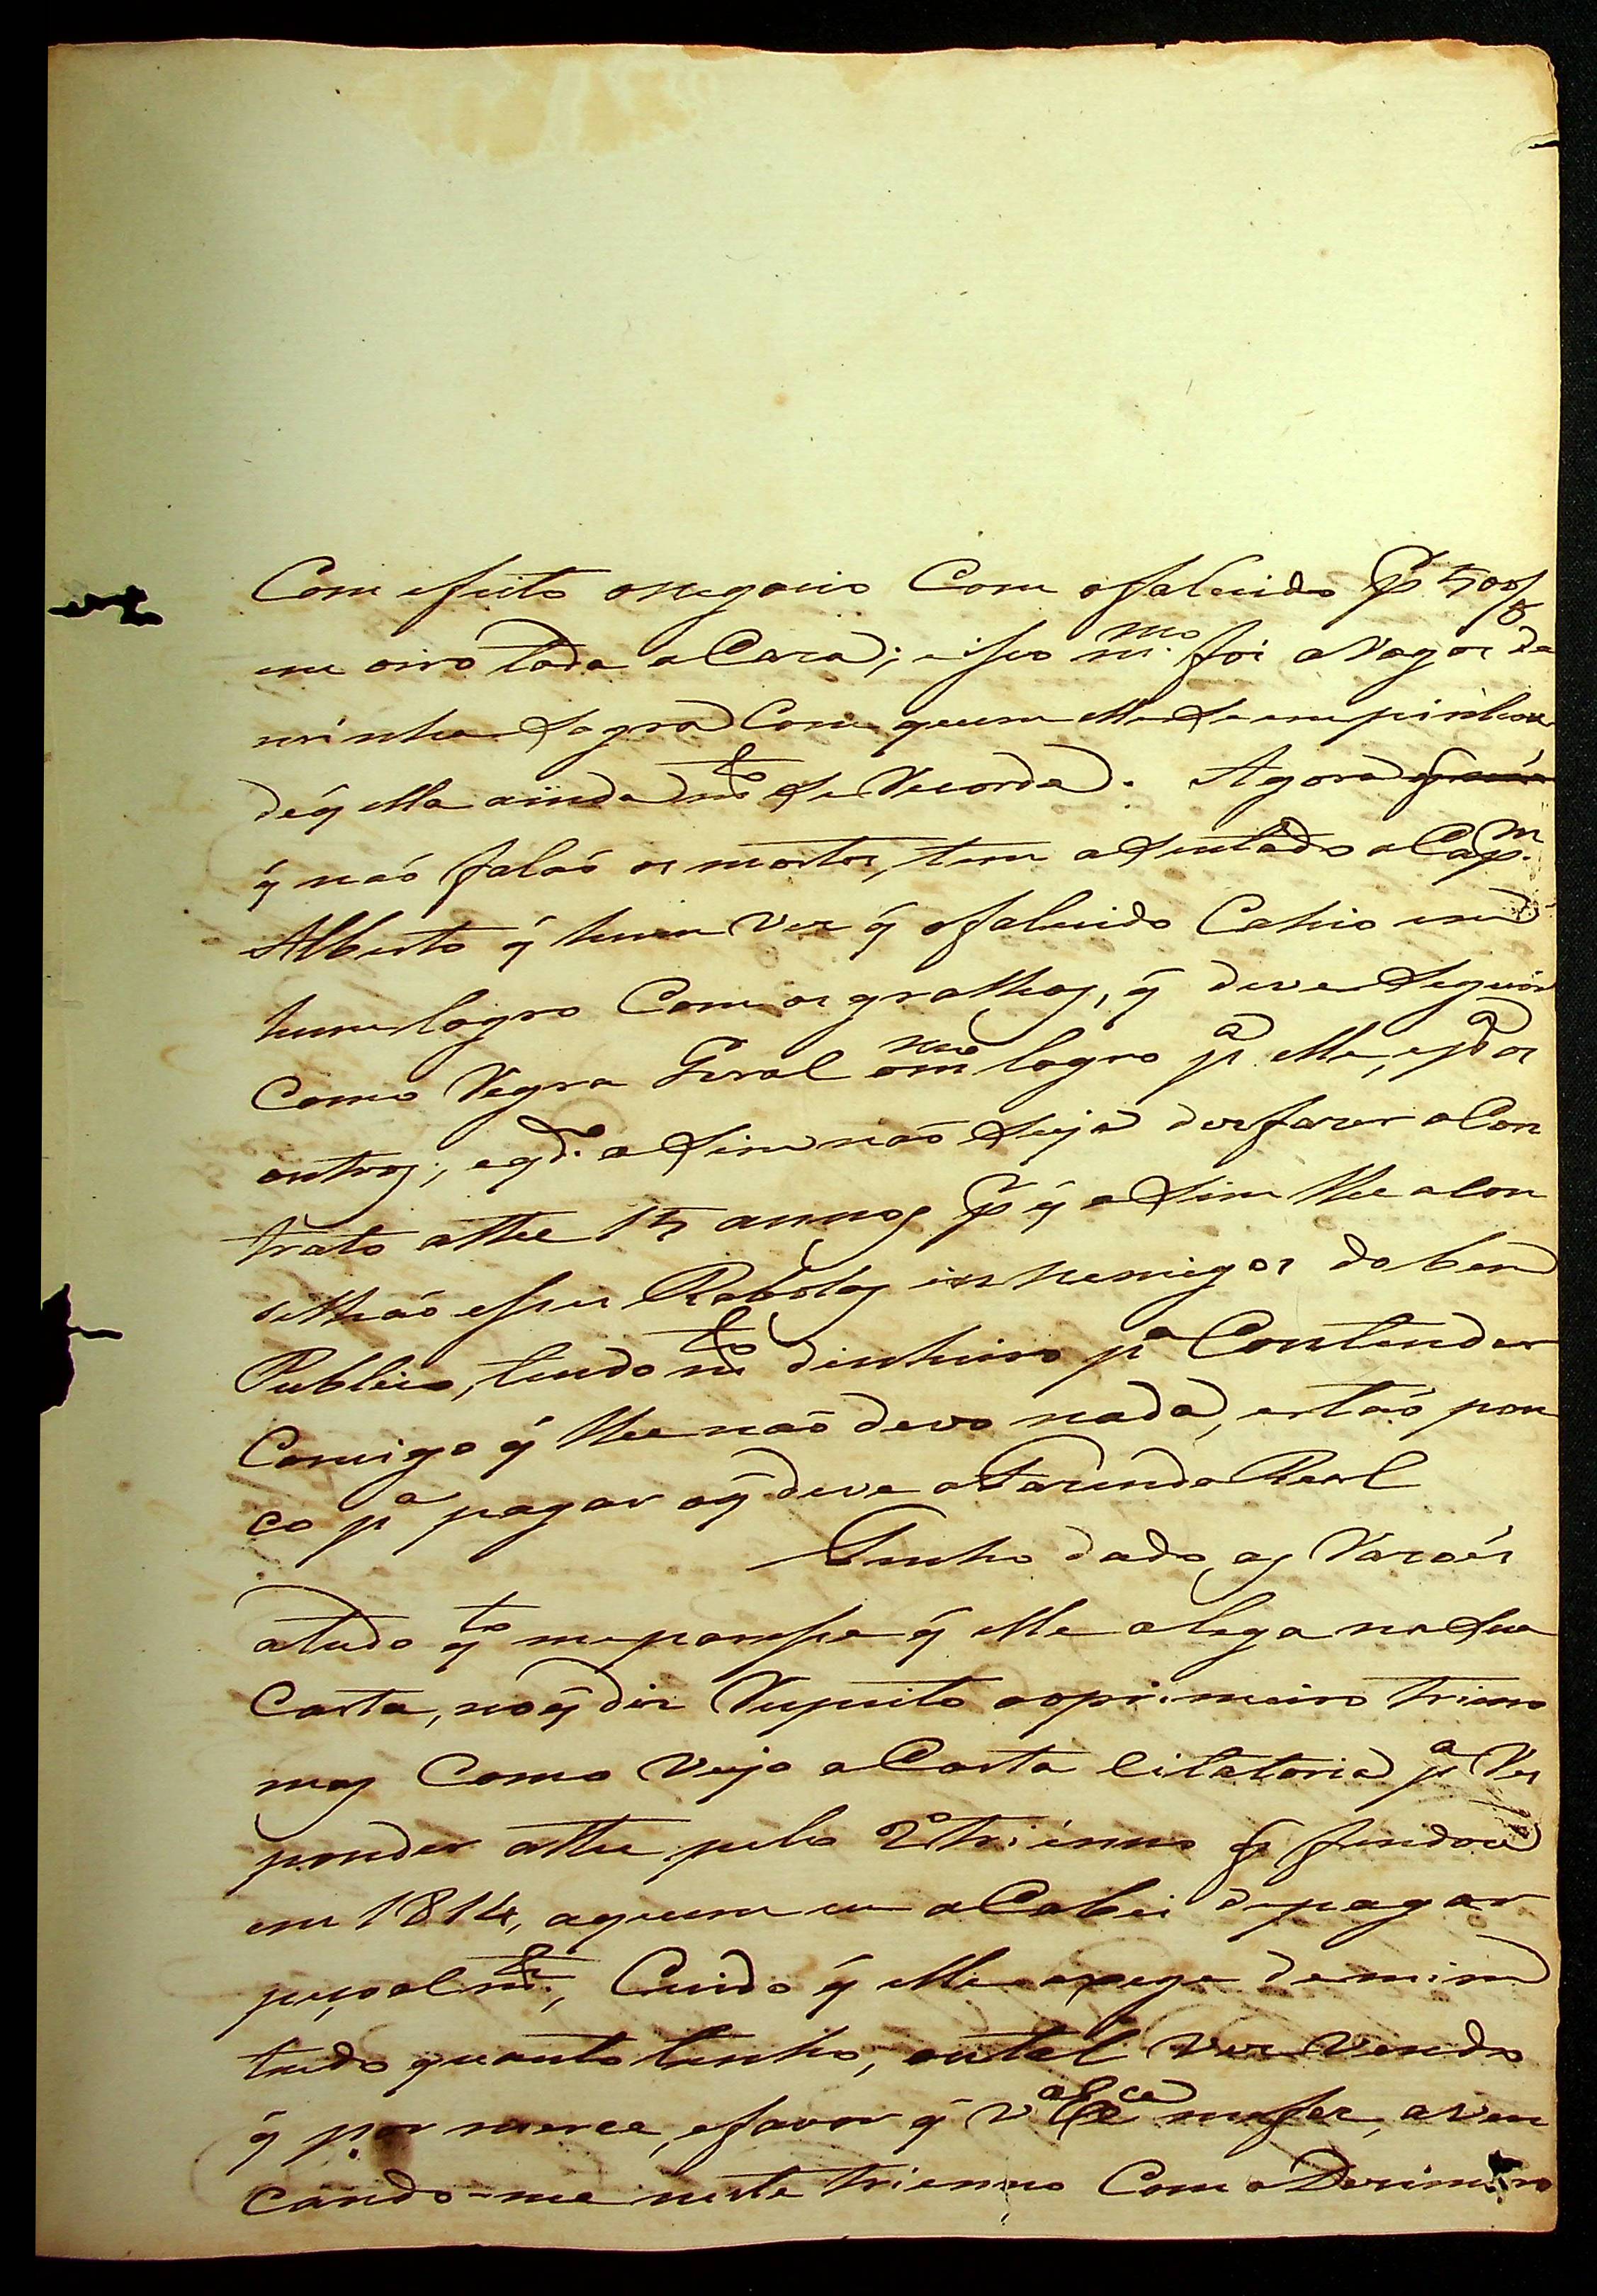 Com efeito o negocio com o falecido p.r 500/8
em oiro toda a Caza; e isso m.mo foi a rogos de
minha Sogra com quem elle se empinhou
de q̃ ella ainda m.to se recorda. Agora
q̃ naõ falaõ os mortos, tem asentado o Cap.m
Alberto q̃ huma vez q̃ o falecido Cahio em
hum logro com os gralhos, q̃ deve seguir
como regra Geral o m.mo logro p.a elle, e p.a os
outros; e q.do asim naõ seja desfazer o Con
trato athe 15 annos p.r q̃ asim lhe acon
selhaõ esses Rabolas inhemigos do bem
Publico, tendo m.to dinheiro p.a Contender
Comigo q̃ lhe naõ devo nada, e taõ pou
co p.a pagar o q̃ deve a Fazenda Real
Tenho dado as razoẽs
a tudo q.to me paresse q̃ elle alega na sua
Carta, no q̃ diz respeito ao primeiro trieno
mas como vejo a Carta Citatoria p.a res
ponder athe pelo 2º trienno q̃ findou
em 1814, a quem eu acabei de pagar
pesoalm.te, Cuido q̃ elle a pega de mim
tudo quanto tenho, e tal vez vendo
q̃ por merce, e favor q̃ V.a Ex.ca me fez, aven
cando-me neste trienno com o Dezimeiro